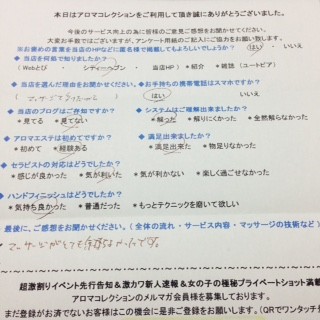 本日はアロマコレクションをご利用して頂き誠にありがとうございました。
今後のサービス向上の為に皆様のご意見ご感想をお聞かせください。
大変お手数ではございますが、アンケート用紙のご記入にご協力をお願い致します。
※お褒めの言葉を当店のHPなどに匿名様で掲載してもよろしいでしょうか？ はい ・ いいえ
◆当店を何処で知りましたか？
(Webとぴ ・ シティーヘブン ・ 当店HP) *紹介 *雑誌 (ユートピア)
◆当店を選んだ理由をお聞かせください。 ◆お手持ちの携帯電話はスマホですか？
はい ・ いいえ
◆当店のブログはご存知ですか？ ◆システムはご理解出来ましたか？
*見てる *見てない *解った *解りにくかった *全然解らなかった
◆アロマエステは初めてですか？ ◆満足出来ましたか？
*初めて *経験ある *満足出来た *物足りなかった
◆セラピストの対応はどうでしたか？
*感じが良かった *気が利いた *気が利かない *楽しく過ごせなかった
◆ハンドフィニッシュはどうでしたか？
*気持ち良かった *普通だった *もっとテクニックを磨いて欲しい
最後に、ご感想をお聞かせください。(全体の流れ・サービス内容・マッサージの技術など)
マッサージがとても
かったです。
超激割りイベント先行告知&激カワ新人速報&女の子の極秘プライベートショット満載
アロマコレクションのメルマガ会員様を募集しております。
まだ登録がお済でないお客様はこの機会に是非ご登録をお願いします。(QRでワンタッチ